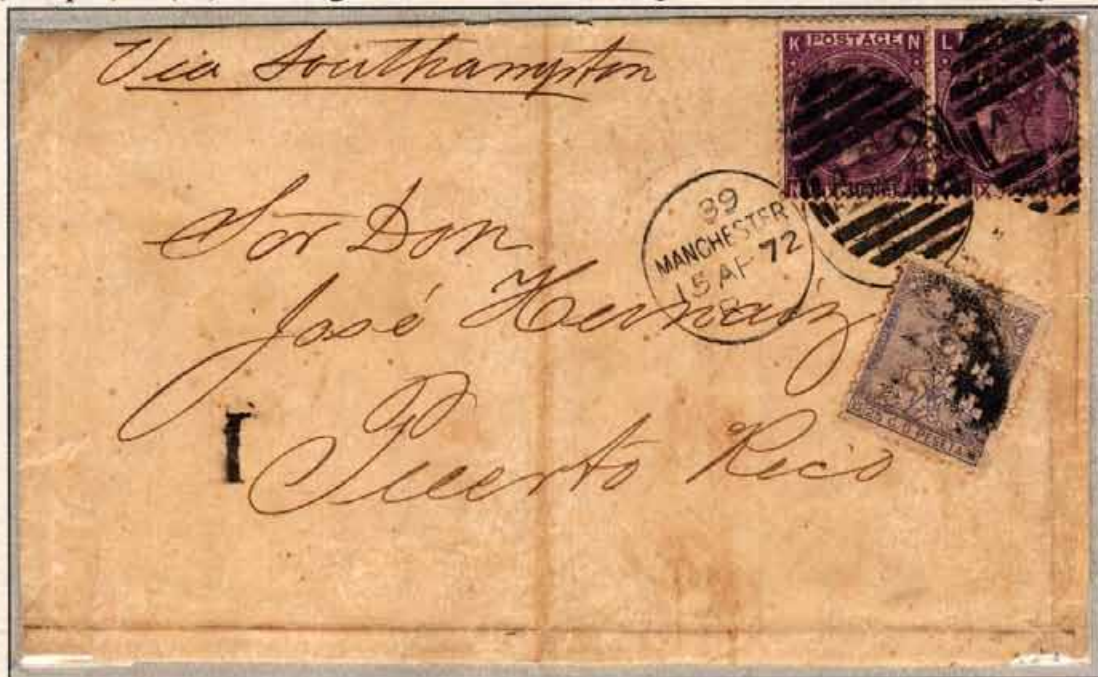 Via Southampton
K POSTAGE N L
SIX
39
MANCHESTER
15 AP 72
Sor Don
José Hernaiz
Puerto Rico
I
25 C. D PESETA